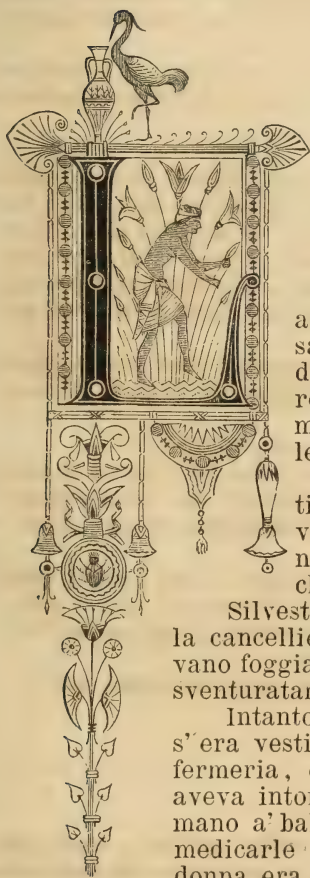 L
a
sa
d
re
m
le
ti
v
n
cl
Silvest
la cancellie
vano foggia
sventuratan
Intanto
s'era vesti
fermeria,
aveva intor
mano a' bal
medicarle
donna era